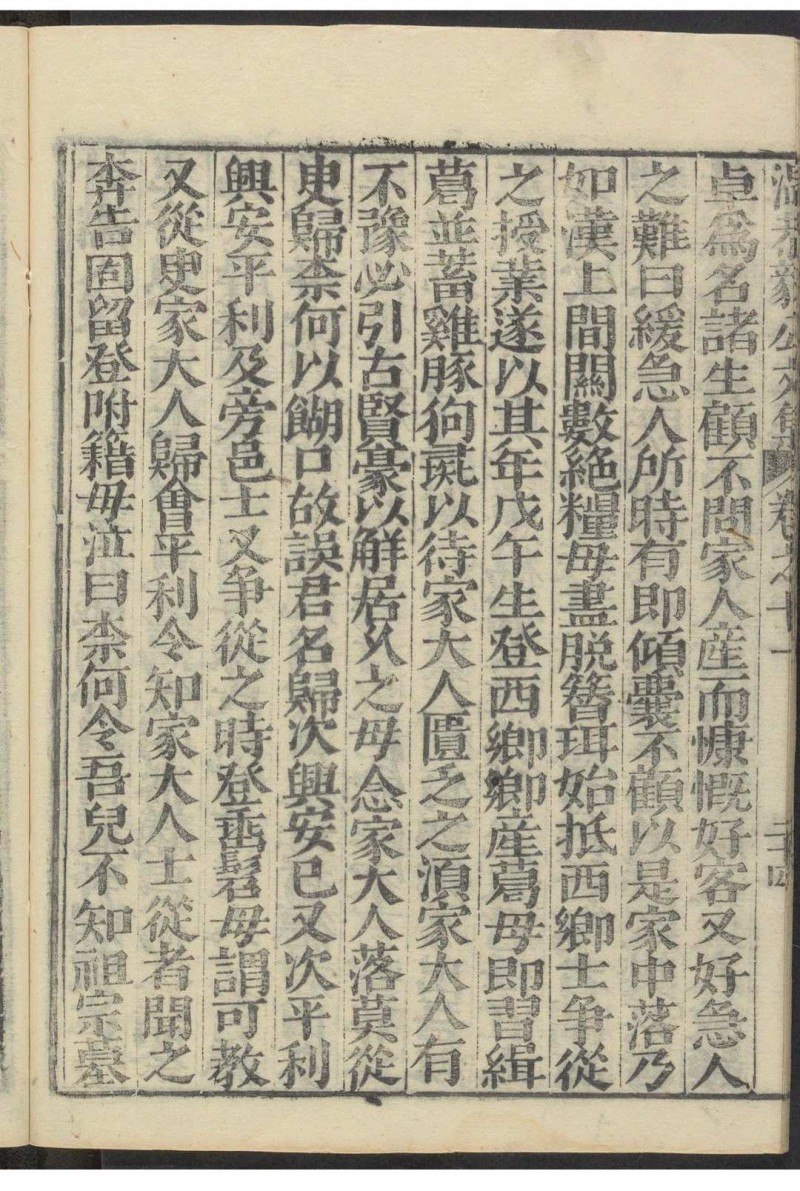 溫恭毅公文集 卷之十一 二十四
卓為名諸生顧不問家人産而慷慨好客又好急人
之難曰緩急人所時有即傾囊不顧以是家中落乃
如漢上間關數絶糧母盡脱簪珥始抵西鄉士争從
之授業遂以其年戊午生登西鄉鄉産葛母即習緝
葛並蓄雞豚狗彘以待家大人匱乏之湏家大人有
不豫必引古賢豪以解居乆之母念家大人落莫從
吏歸柰何以餬口故誤君名歸次興安已又次平利
興安平利及旁邑士又争從之時登垂髫母謂可教
又從吏家大人歸會平利令知家大人士從者聞之
奔告固留登附籍母泣曰柰何令吾兒不知祖宗墓